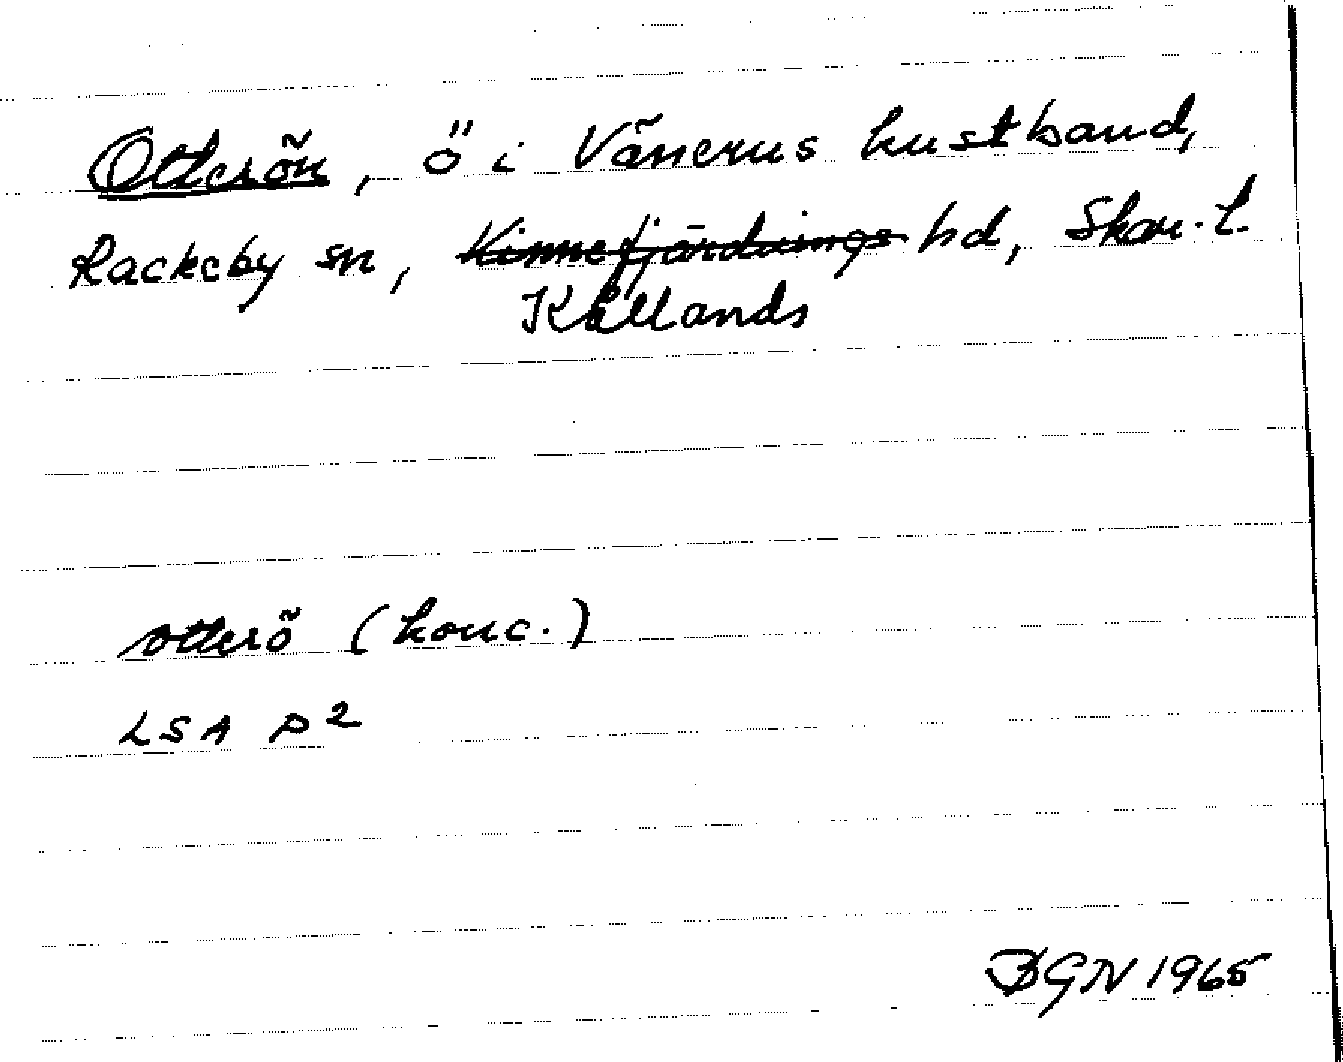 Otterön, ö i Vänerns kustband,
Rackeby sn, Kinnefjärdings hd, Skar. l.
Kållands
otterö (konc.)
LSA P2
BGN 1965